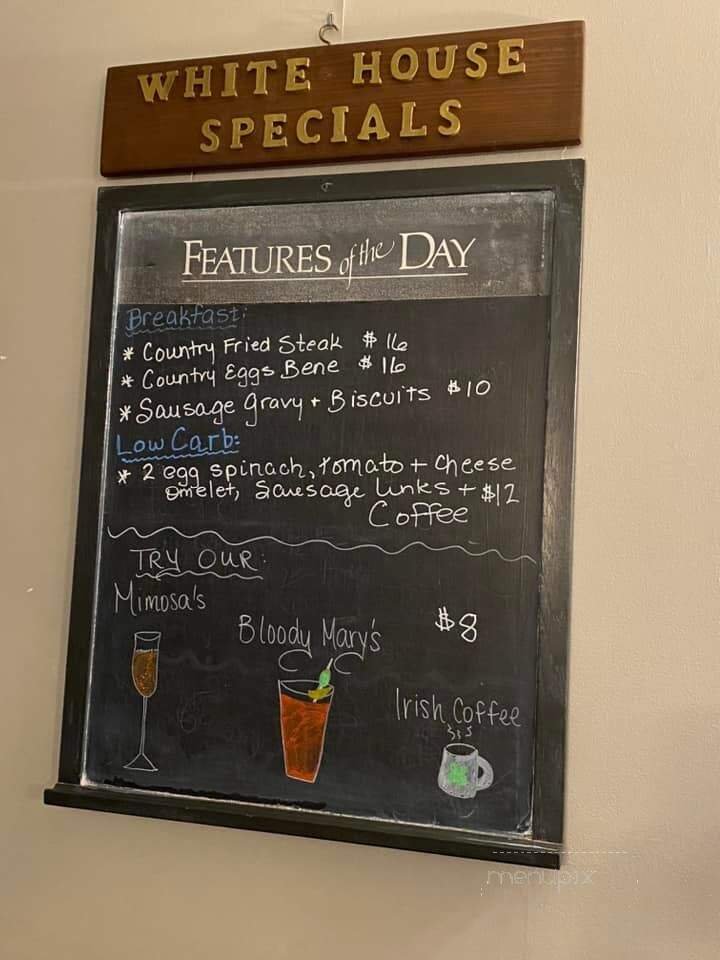 WHITE HOUSE
SPECIALS
FEATURES of the DAY
Breakfast:
* Country Fried Steak $16
* Country Eggs Bene $16
* Sausage gravy + Biscuits $10
Low Carb:
* 2 egg spinach, tomato + cheese
omelet, Sausage links + $12
Coffee
TRY OUR:
Mimosa's
Bloody Mary's $8
Irish Coffee
menupix